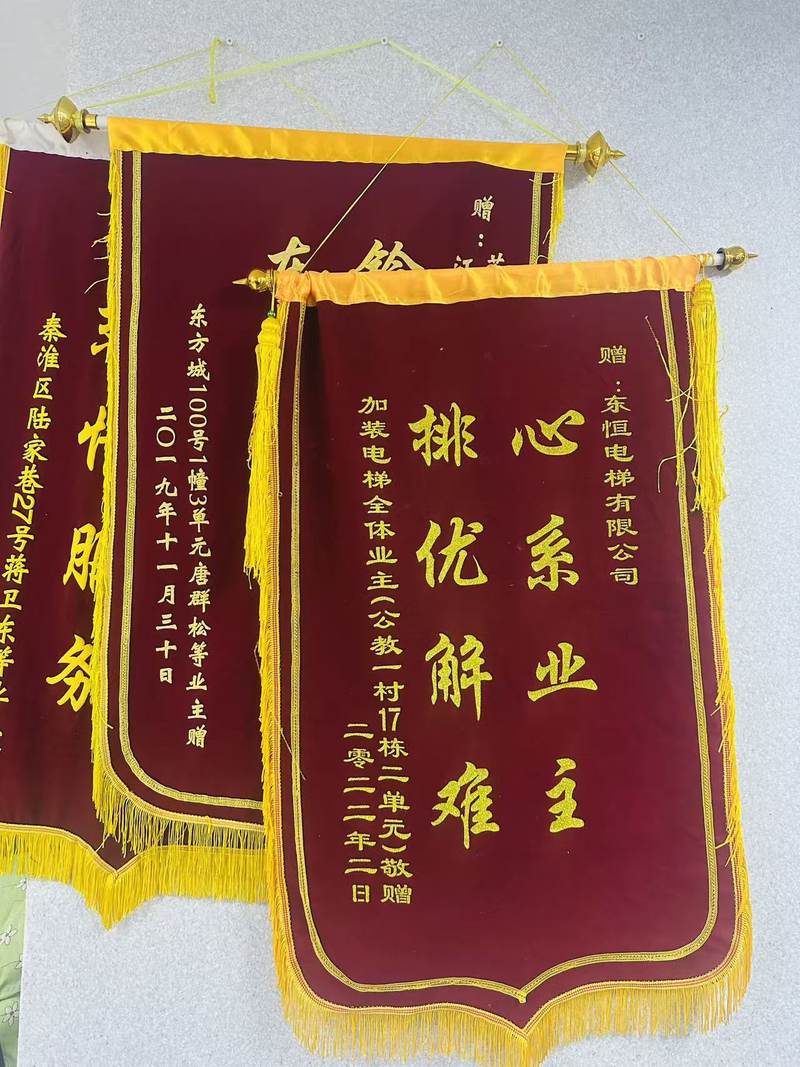 赠:东恒电梯有限公司
心系业主
排优解难
加装电梯全体业主(公教一村17栋二单元)敬赠
二零二二年二日
赠:
东方城100号1幢3单元唐群松等业主赠
二〇一九年十一月三十日
服务
秦淮区陆家巷27号蒋卫东等业